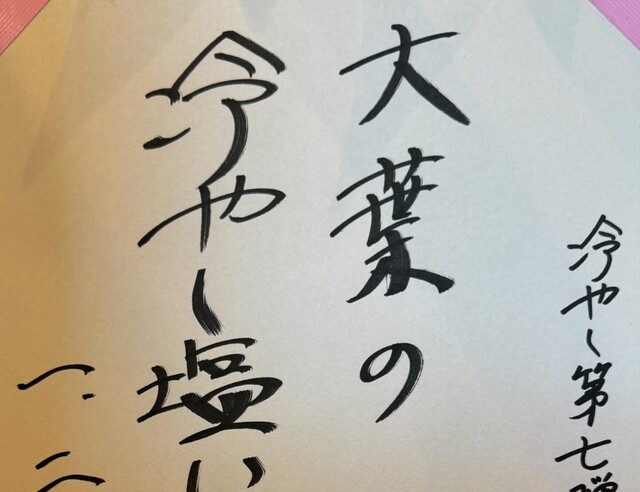 冷やし第七弾
大葉の
冷やし塩い
一、二